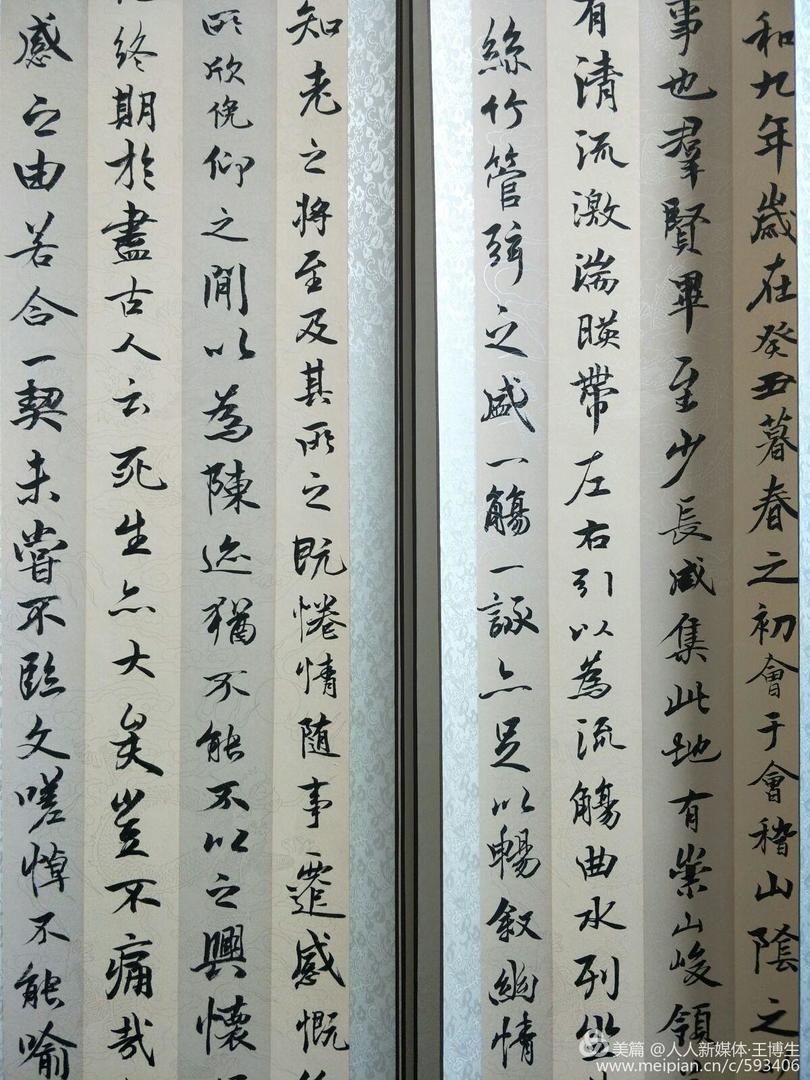 和九年歲在癸丑暮春之初會于會稽山陰之
事也羣賢畢至少長咸集此地有崇山峻領
有清流激湍暎帶左右引以為流觴曲水列坐
絲竹管弦之盛一觴一詠亦足以暢敘幽情
知老之將至及其所之既惓情随事遷感慨
欣俛仰之閒以為陳迹猶不能不以之興懷
終期於盡古人云死生亦大矣豈不痛哉
感之由若合一契未嘗不臨文嗟悼不能喻
美篇 @人人新媒体·王博生
www.meipian.cn/c/593406